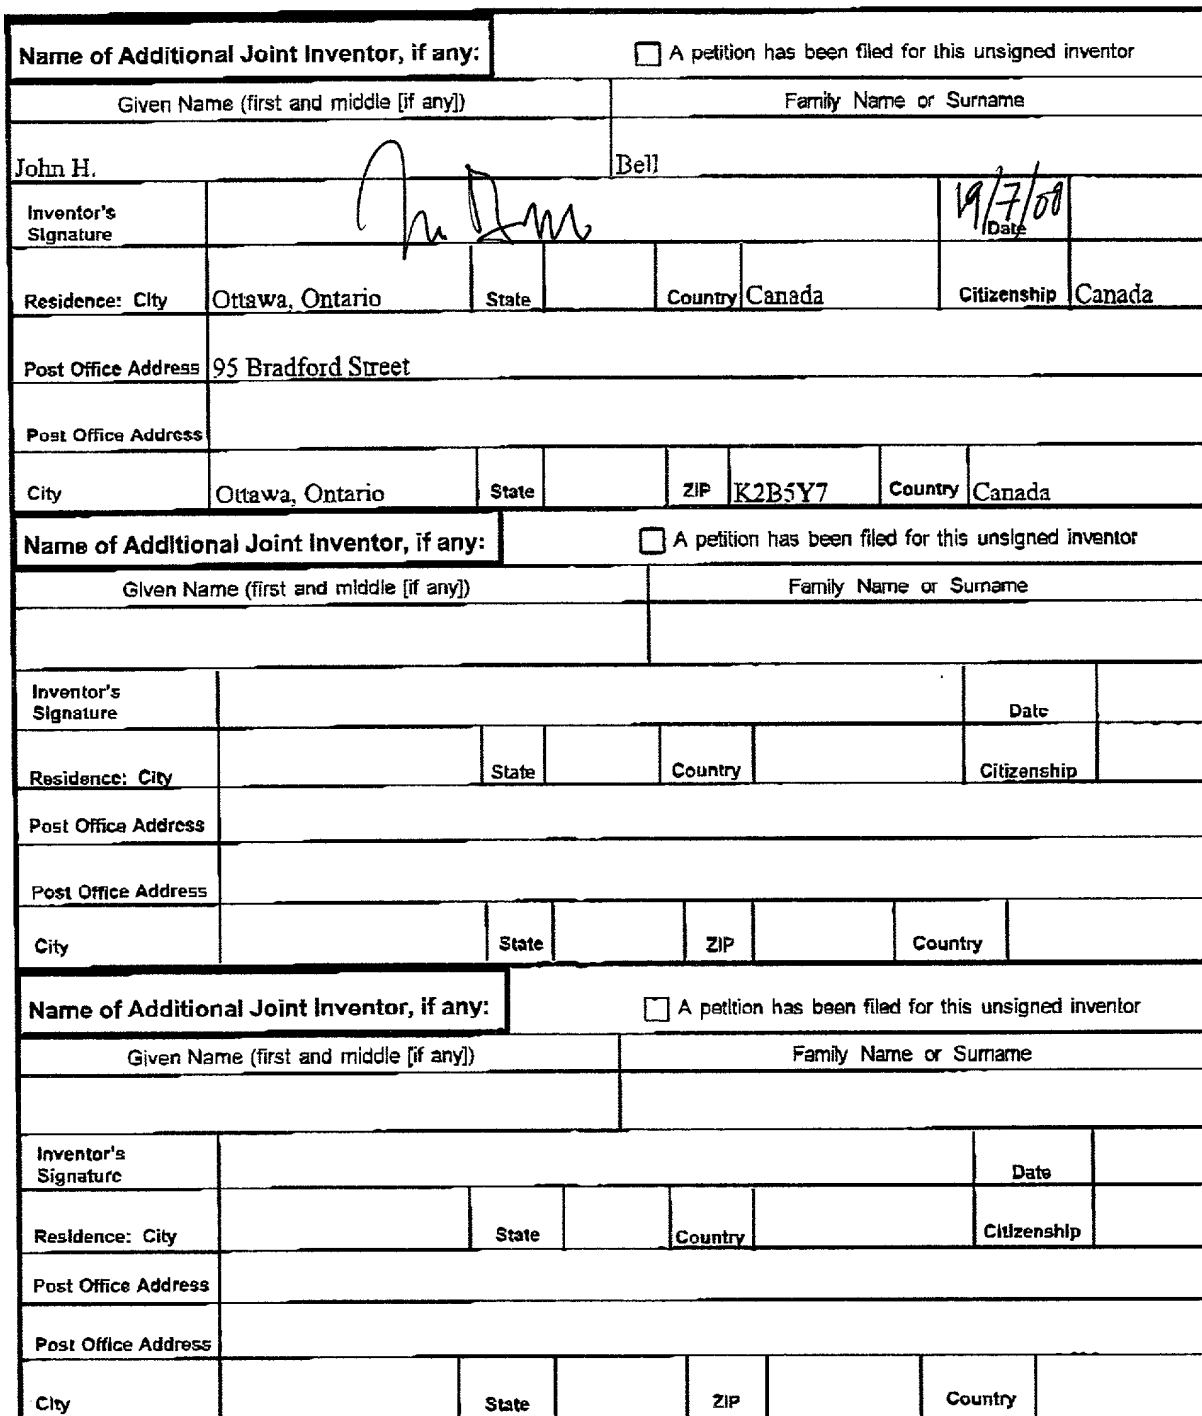 Name of Additional Joint Inventor, if any: A petition has been filed for this unsigned inventor
Given Name (first and middle [if any]) Family Name or Surname
John H. Bell
Inventor's
Signature 19/7/00 Date
Residence: City Ottawa, Ontario State Country Canada Citizenship Canada
Post Office Address 95 Bradford Street
Post Office Address
City Ottawa, Ontario State ZIP K2B5Y7 Country Canada
Name of Additional Joint Inventor, if any: A petition has been filed for this unsigned inventor
Given Name (first and middle [if any]) Family Name or Surname
Inventor's
Signature Date
Residence: City State Country Citizenship
Post Office Address
Post Office Address
City State ZIP Country
Name of Additional Joint Inventor, if any: A petition has been filed for this unsigned inventor
Given Name (first and middle [if any]) Family Name or Surname
Inventor's
Signature Date
Residence: City State Country Citizenship
Post Office Address
Post Office Address
City State ZIP Country